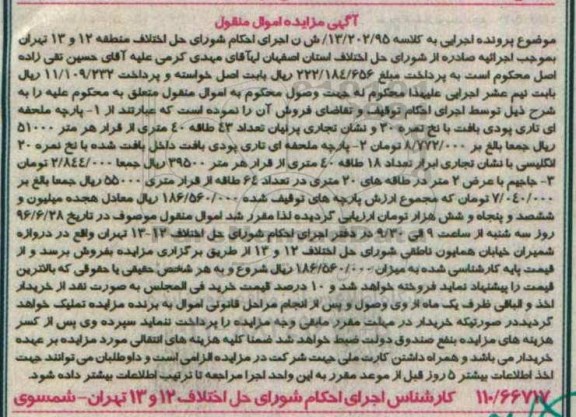 آگهی مزایده اموال منقول
موضوع پرونده اجرایی به کلاسه ۱۳/۲۰۲/۹۵/ ش ن اجرای احکام شورای حل اختلاف منطقه ۱۲ و ۱۳ تهران
بموجب اجرائیه صادره از شورای حل اختلاف استان اصفهان لهآقای مهدی کرمی علیه آقای حسین تقی زاده
اصل محکوم است به پرداخت مبلغ ۲۲۲/۱۸۴/۶۵۶ ریال بابت اصل خواسته و پرداخت ۱۱/۱۰۹/۲۳۲ ریال
بابت نیم عشر اجرایی علیهذا محکوم له جهت وصول محکوم به اموال منقول متعلق به محکوم علیه را به
شرح ذیل توسط اجرای احکام توقیف و تقاضای فروش آن را نموده است که عبارتند از ۱- پارچه ملحفه
ای تاری پودی بافت با نخ نمره ۳۰ و نشان تجاری پرنیان تعداد ۴۳ طاقه ۴۰ متری از قرار هر متر ۵۱۰۰۰
ریال جمعا بالغ بر ۸/۷۷۲/۰۰۰ تومان ۲- پارچه ملحفه ای تاری پودی بافت داخل بافت شده با نخ نمره ۲۰
انگلیسی با نشان تجاری ابرار تعداد ۱۸ طاقه ۴۰ متری از قرار هر متر ۳۹۵۰۰ ریال جمعا ۲/۸۴۴/۰۰۰ تومان
۳- جاجیم با عرض ۲ متر در طاقه های ۲۰ متری در تعداد ۶۴ طاقه از قرار متری ۵۵۰۰۰ ریال جمعا بالغ بر
۷/۰۴۰/۰۰۰ تومان که مجموع ارزش پارچه های توقیف شده ۱۸۶/۵۶۰/۰۰۰ ریال معادل هجده میلیون و
ششصد و پنجاه و شش هزار تومان ارزیابی گردیده لذا مقرر شد اموال منقول موصوف در تاریخ ۹۶/۶/۲۸
روز سه شنبه از ساعت ۹ الی ۹/۳۰ در دفتر اجرای احکام شورای حل اختلاف ۱۲-۱۳ تهران واقع در دروازه
شمیران خیابان همایون ناطقی شورای حل اختلاف ۱۲ و ۱۳ از طریق برگزاری مزایده بفروش برسد و از
قیمت پایه کارشناسی شده به میزان ۱۸۶/۵۶۰/۰۰۰ ریال شروع و به هر شخص حقیقی یا حقوقی که بالاترین
قیمت را پیشنهاد نماید فروخته خواهد شد و ۱۰ درصد قیمت خرید فی المجلس به صورت نقد از خریدار
اخذ و الباقی ظرف یک ماه از وی وصول و پس از انجام مراحل قانونی اموال به برنده مزایده تملیک خواهد
گردید.در صورتیکه خریدار در مهلت مقرر مابقی وجه مزایده را پرداخت ننماید سپرده وی پس از کسر
هزینه های مزایده بنفع صندوق دولت ضبط خواهد شد ضمنا کلیه هزینه های انتقالی مورد مزایده بر عهده
خریدار می باشد و همراه داشتن کارت ملی جهت شرکت در مزایده الزامی است و داوطلبان می توانند جهت
اخذ اطلاعات بیشتر ۵ روز قبل از موعد مقرر به این واحد اجرا مراجعه تا ترتیب اطلاعات بیشتر داده شود.
۱۱۰/۶۶۷۱۷ کارشناس اجرای احکام شورای حل اختلاف ۱۲ و ۱۳ تهران - شمسوی